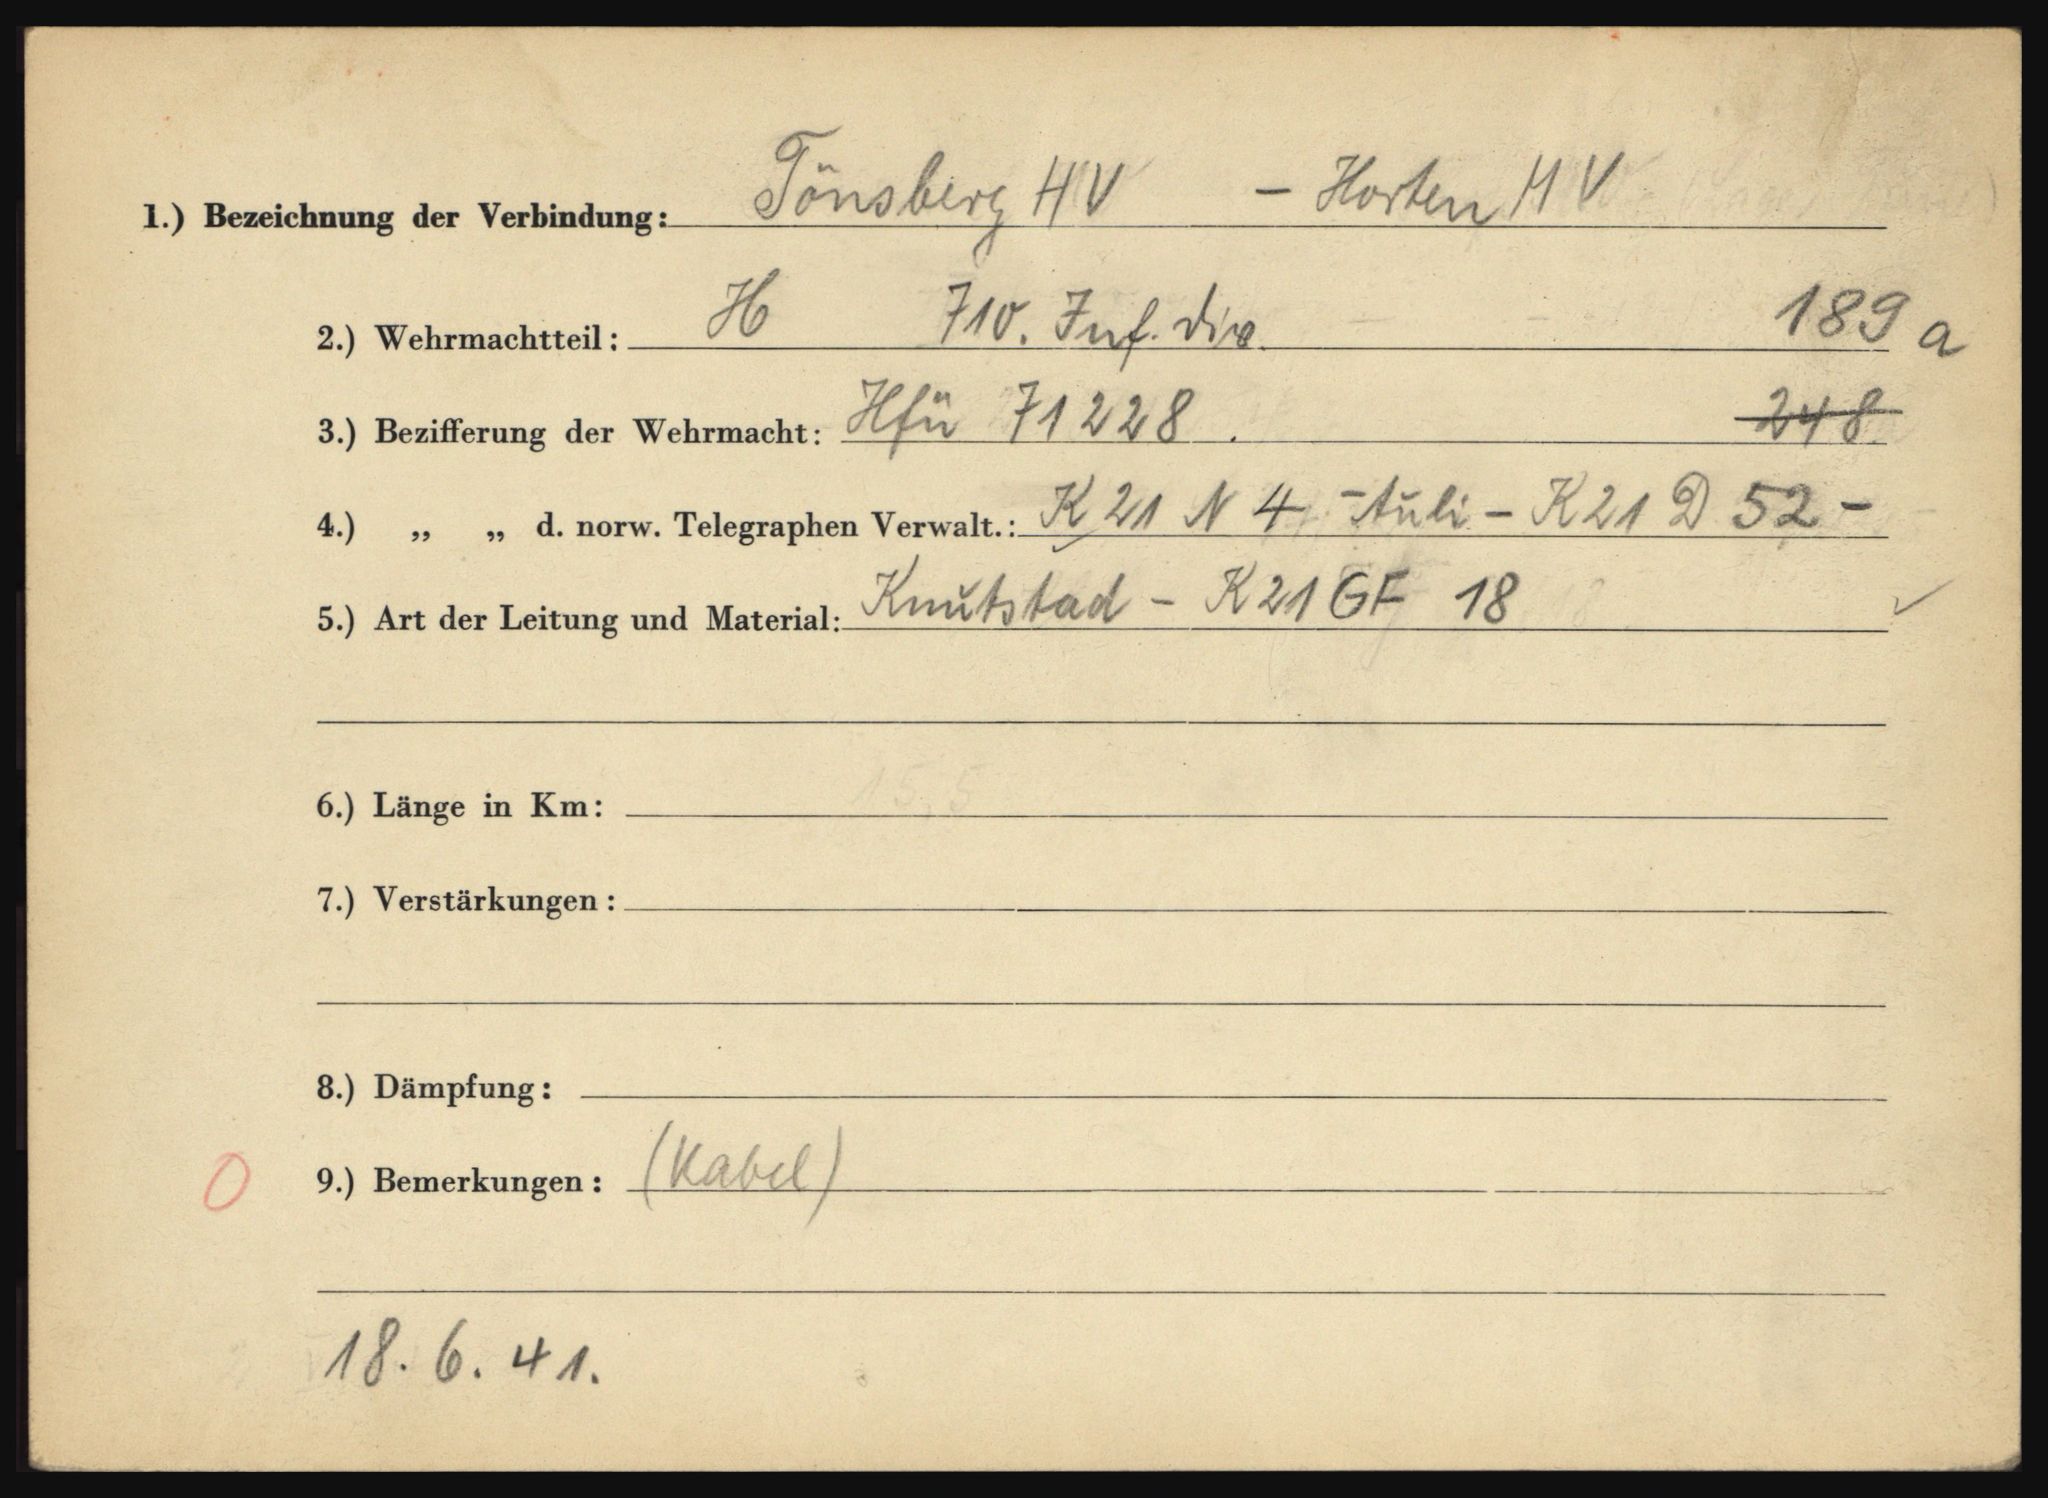 1.) Bezeichnung der Verbindung: Tönsberg HV – Horten HV
2.) Wehrmachtteil: H 710. Inf. div. 189 a
3.) Bezifferung der Wehrmacht: Hfü 71228. 248
4.) „ „ d. norw. Telegraphen Verwalt.: K21 N 4 – Auli – K21 D 52 –
5.) Art der Leitung und Material: Knutstad – K21 GF 18 ✓
6.) Länge in Km: 15,5
7.) Verstärkungen:
8.) Dämpfung:
0 9.) Bemerkungen: (Kabel)
18. 6. 41.